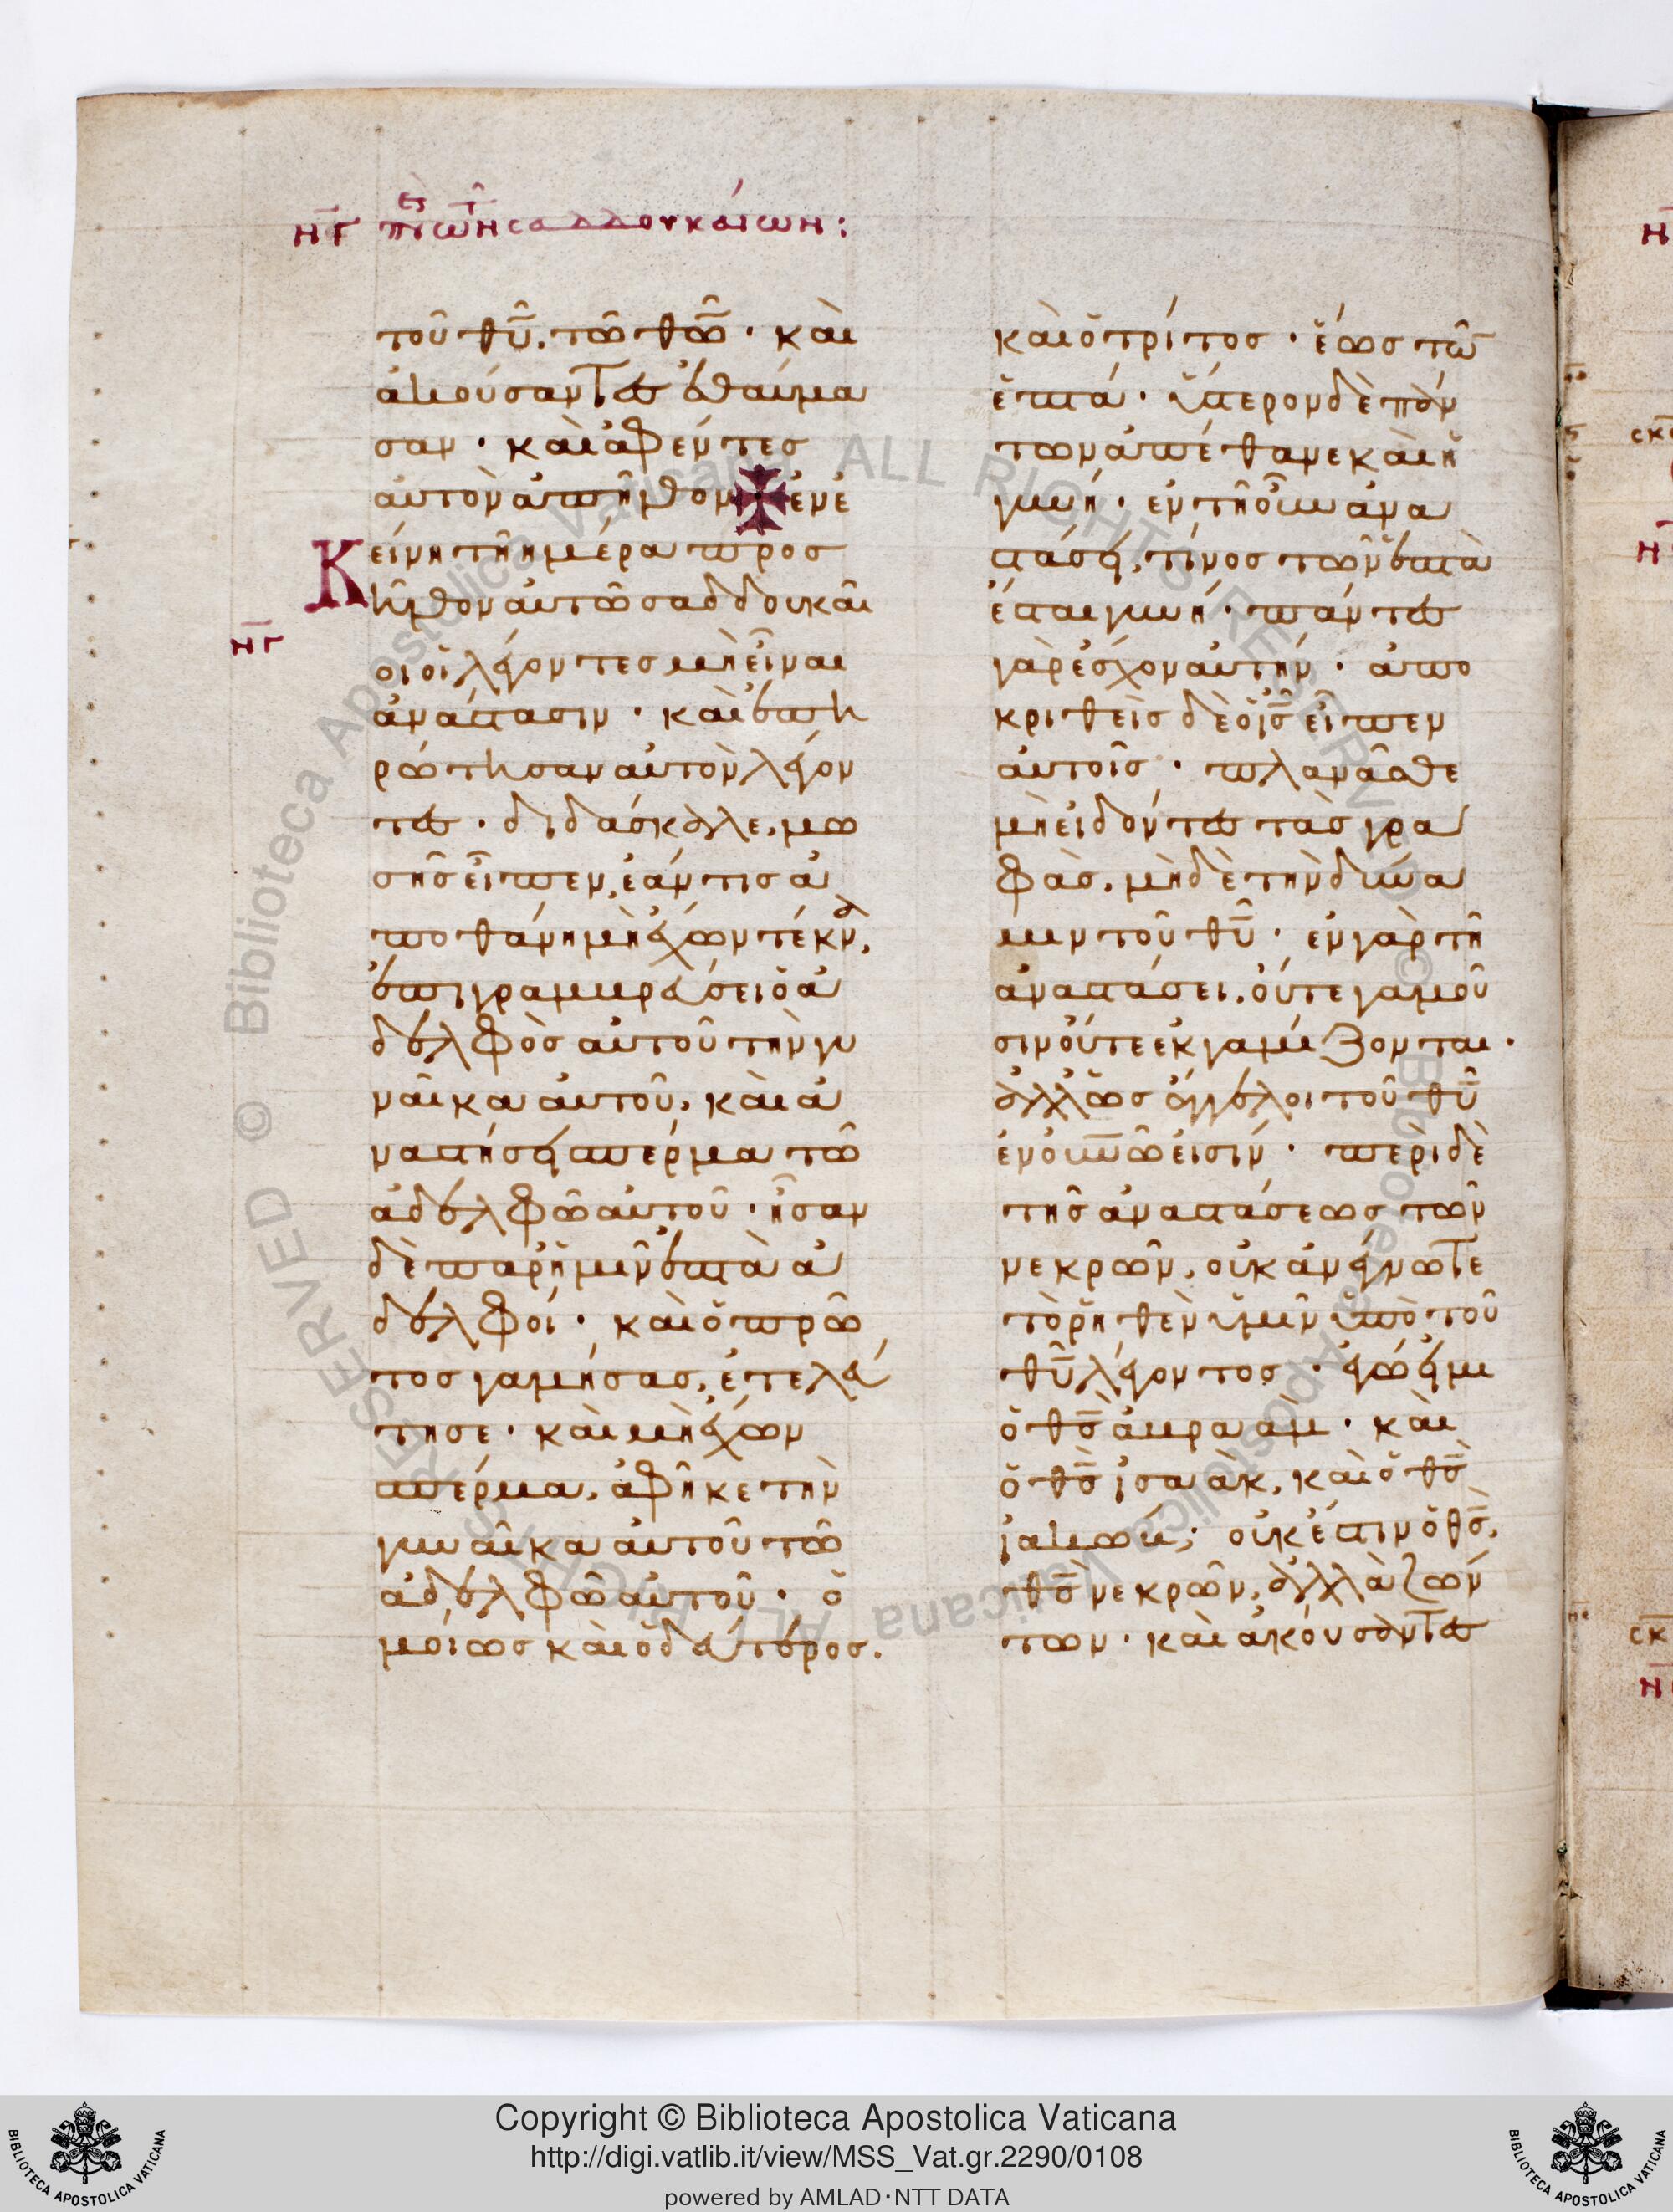 ν̅γ̅ πε̣ρ̣ὶ τῶν σαδδουκαίων:
τοῦ θ̅υ̅, τῶ θ̅ω̅· καὶ
ἀκούσαντες ἐθαύμα
σαν· καὶ ἀφέντες
αὐτὸν ἀπῆλθον ἐν ἐ
κείνη τῆ ἡμέρα προσ
ῆλθον αὐτῶ σαδδουκαῖ
ν̅γ̅
οι οἱ λέγοντες μὴ εἶναι
ἀνάστασιν· καὶ ἐπη
ρώτησαν αὐτὸν λέγον
τες· διδάσκαλε, μω
σῆς εἶπεν, ἐάν τις ἀ
ποθάνη μὴ ἔχων τέκνα,
ἐπιγαμβρεύσει ὁ ἀ
δελφὸς αὐτοῦ τὴν γυ
ναῖκα αὐτοῦ, καὶ ἀ
ναστήσει σπέρμα τῶ
ἀδελφῶ αὐτοῦ· ἦσαν
δὲ παρ' ἡμῖν ἑπτὰ ἀ
δελφοί· καὶ ὁ πρῶ
τος γαμήσας, ἐτελεύ
τησε· καὶ μὴ ἔχων
σπέρμα, ἀφῆκε τὴν
γυναῖκα αὐτοῦ τῶ
ἀδελφῶ αὐτοῦ· ὁ
μοίως καὶ ὁ δεύτερος.
καὶ ὁ τρίτος· ἕως τῶν
ἑπτά· ὕστερον δὲ πάν
των ἀπέθανε καὶ ἡ
γυνή· ἐν τῆ οὖν ἀνα
στάσει, τίνος τῶν ἑπτὰ
ἔσται γυνή· πάντες
γὰρ ἔσχον αὐτήν· ἀπο
κριθεὶς δὲ ὁ ι̅ς̅ εἶπεν
αὐτοῖς· πλανᾶσθε
μὴ εἰδόντες τὰς γρα
φὰς, μὴδὲ τὴν δύνα
μιν τοῦ θ̅υ̅· ἐν γὰρ τῆ
ἀναστάσει, οὔτε γαμοῦ
σιν οὔτε ἐκγαμίζονται·
ἀλλ' ὡς ἄγγελοι τοῦ θ̅υ̅
ἐν ο̅υ̅ν̅ω̅ εἰσίν· περὶ δὲ
τῆς ἀναστάσεως τῶν
νεκρῶν, οὐκ ἀνέγνωτε
τὸ ρηθὲν ὑμῖν ὑπὸ τοῦ
θ̅υ̅ λέγοντος· ἐγώ εἰμι
ὁ θ̅ς̅ ἀβραάμ· καὶ
ὁ θ̅ς̅ ἰσαὰκ, καὶ ὁ θ̅ς̅
ἰακώβ; οὐκ ἔστιν ὁ θ̅ς̅,
θ̅ς̅ νεκρῶν, ἀλλὰ ζών
των· καὶ ἀκούσαντες
Copyright © Biblioteca Apostolica Vaticana
http://digi.vatlib.it/view/MSS_Vat.gr.2290/0108
powered by AMLAD·NTT DATA
BIBLIOTECA APOSTOLICA VATICANA
BIBLIOTECA APOSTOLICA VATICANA